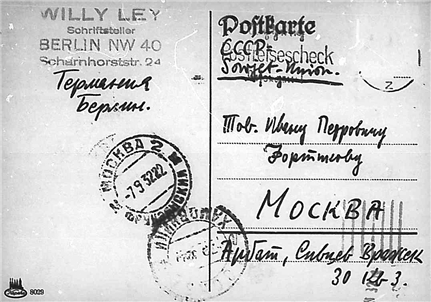 WILLY LEY
Schriftsteller
BERLIN NW 40
Scharnhorststr. 24
Германия
Берлин.
Postkarte
СССР-
Postreisescheck
Sowjet-Union.
МОСКВА 2
-7.9 32 22
Тов. Ивану Петровичу
Фортикову
МОСКВА
Арбат, Сивцев Вражек
30 кв 3.
8029